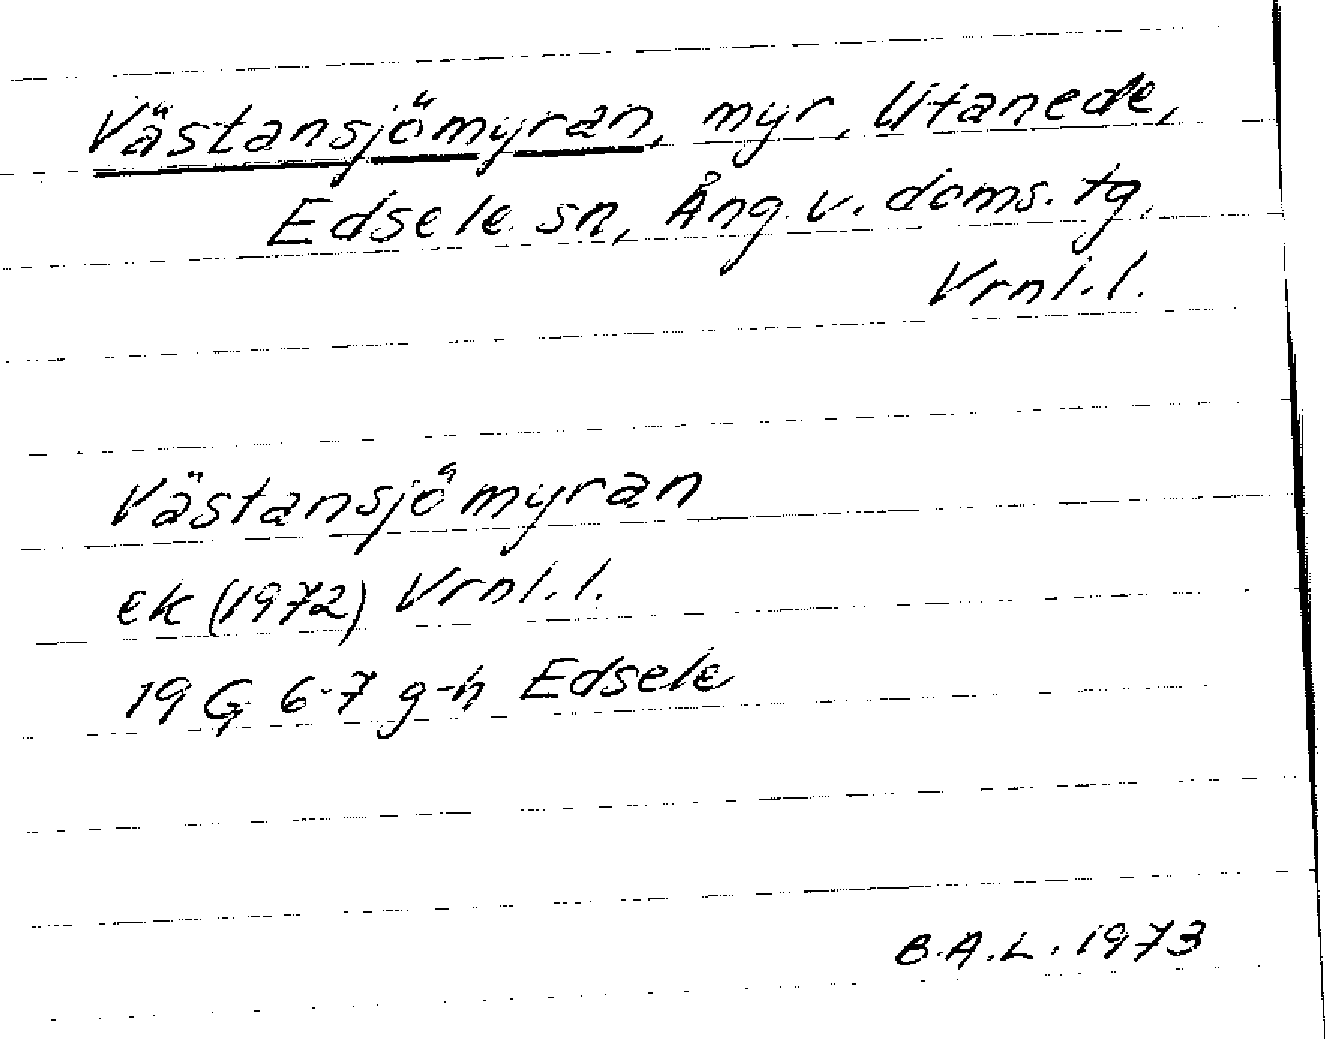 Västansjömyran, myr, Utanede,
Edsele sn, Ång. v. doms. tg,
Vrnl. l.
Västansjömyran
ek (1972) Vrnl. l.
19 G 6-7 g-h Edsele
B.A.L. 1973